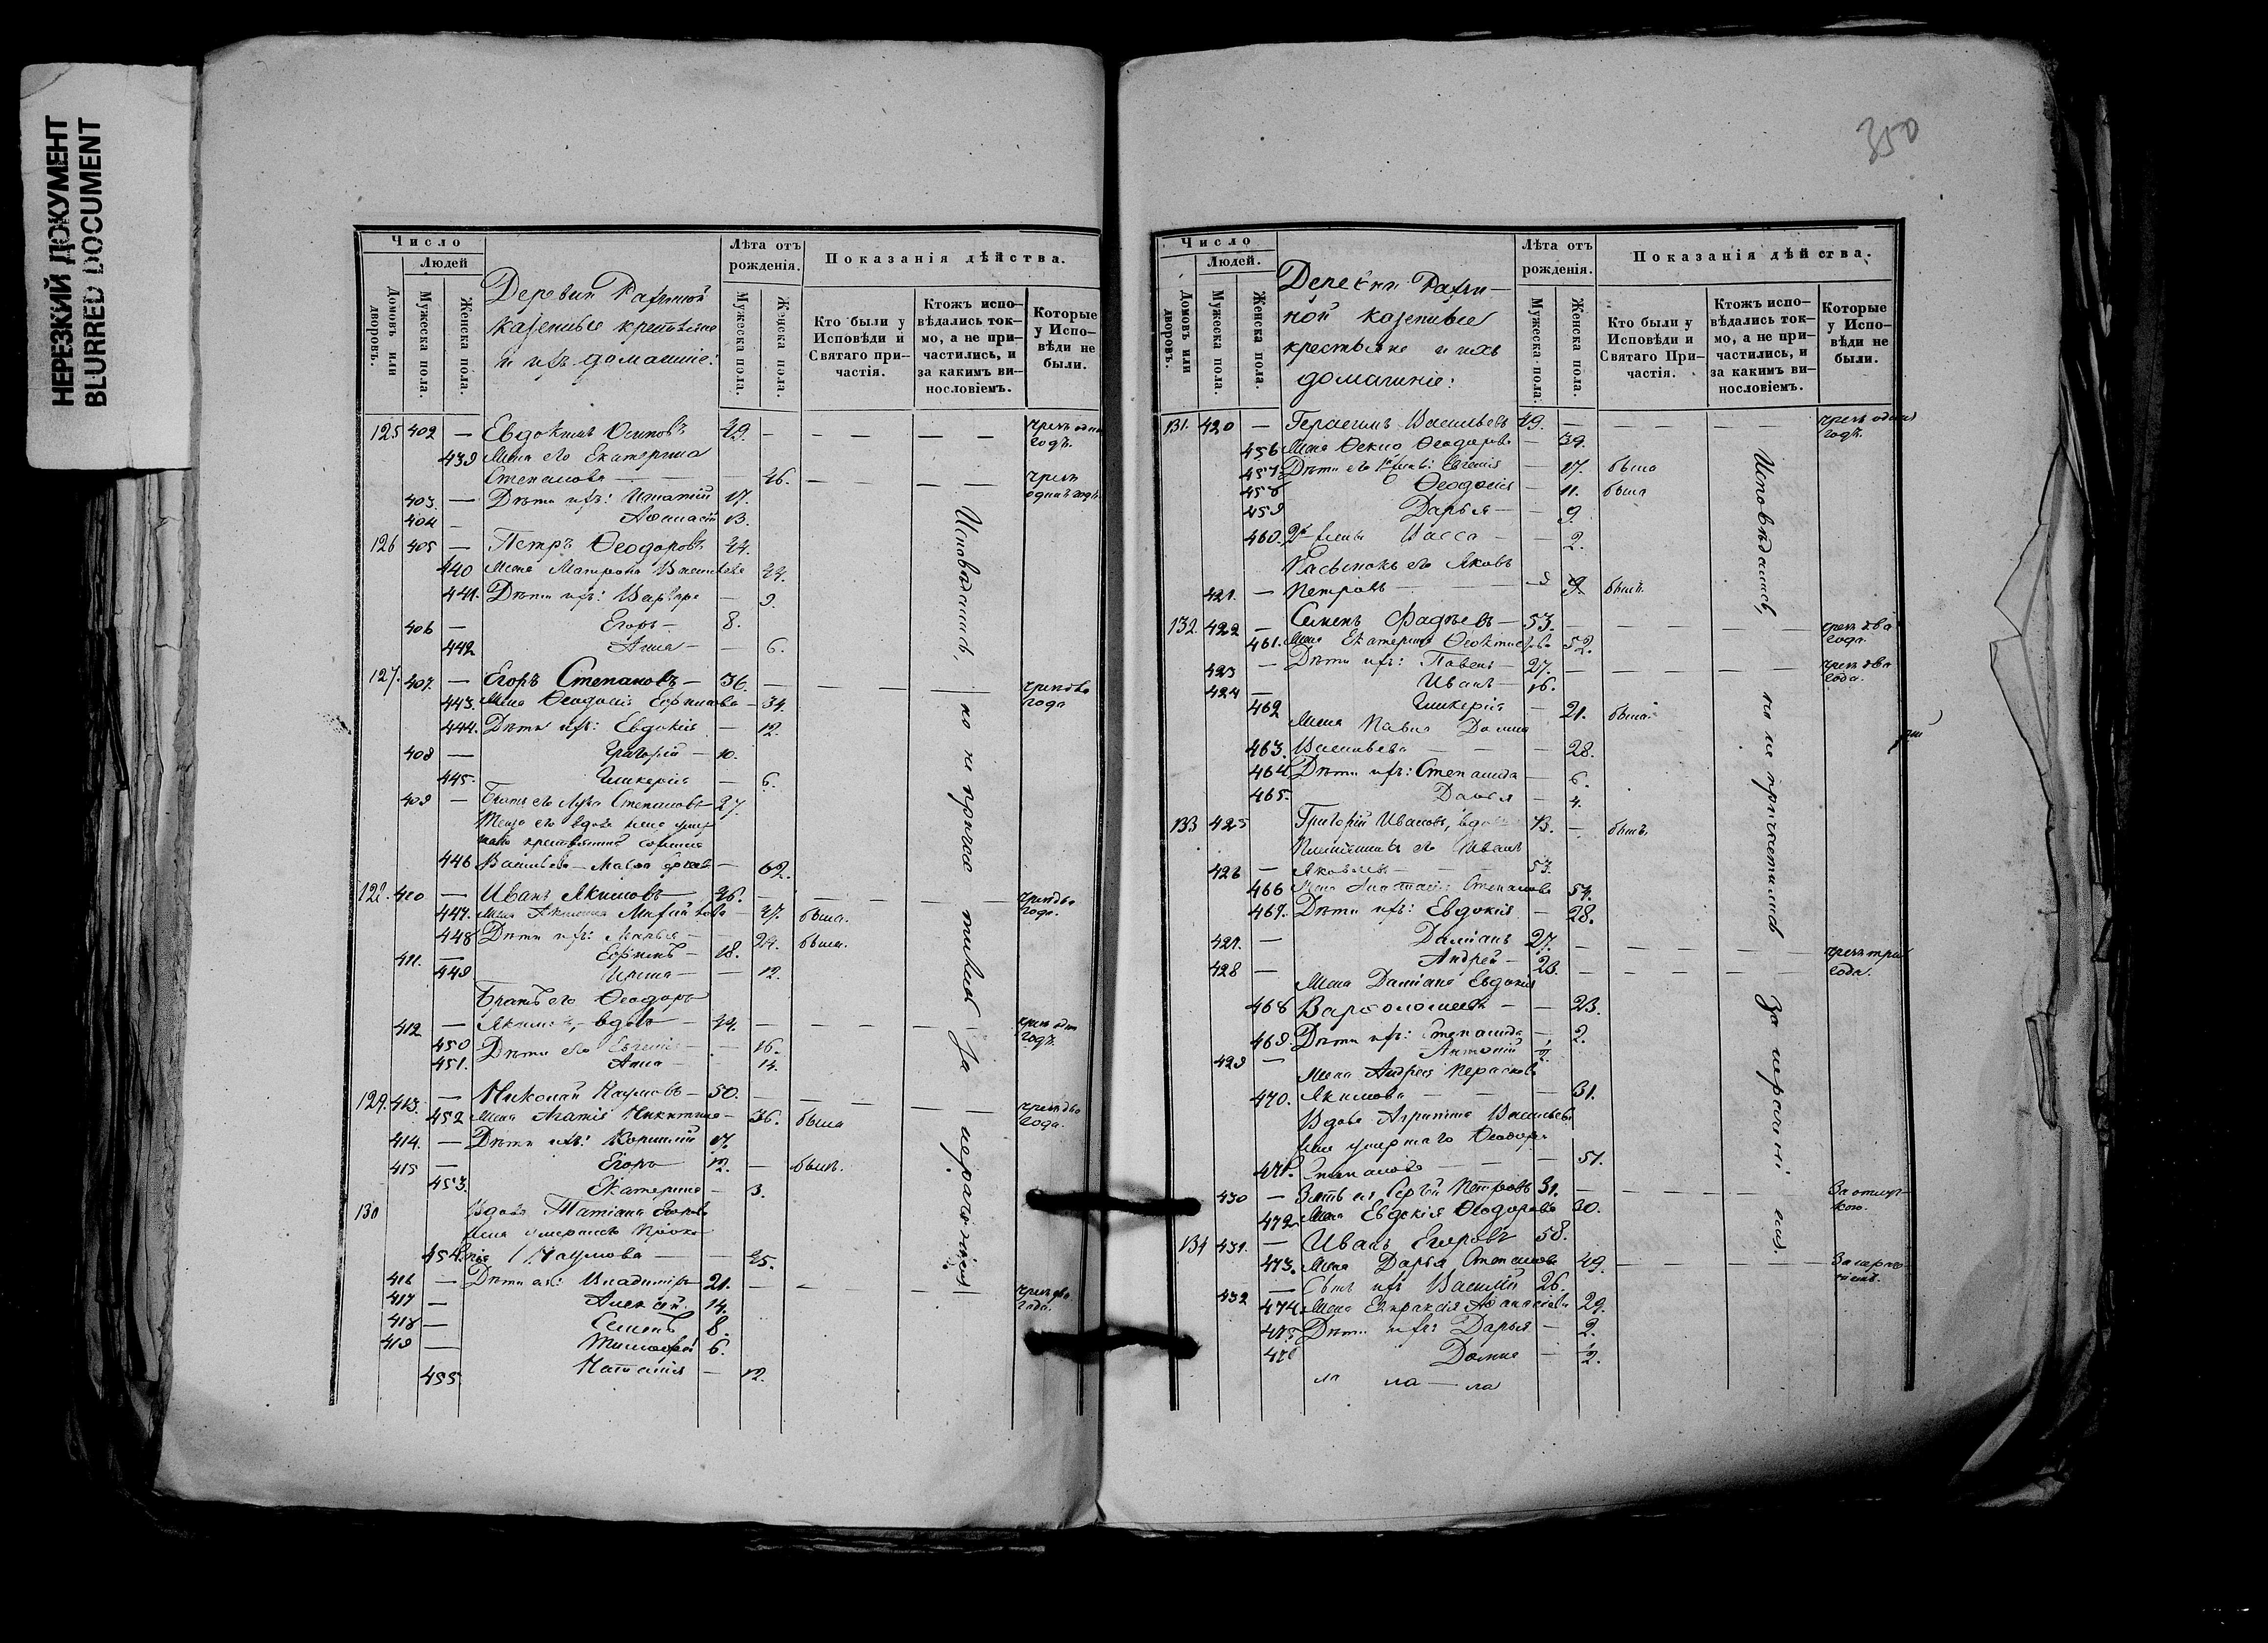 НЕРЕЗКИЙ ДОКУМЕНТ
BLURRED DOCUMENT
Число
Людей
Домовъ или дворовъ.
Мужеска пола.
Женска пола.
казенные крестьяне
и ихъ домашніе:
Лѣта отъ рожденія.
Мужеска пола.
Женска пола.
Показанія дѣйства.
Кто были у Исповѣди и Святаго причастія.
Ктожъ исповѣдались токмо, а не причастились, и за какимъ винословіемъ.
Которые у Исповѣди не были.
125 402 — Евдокимъ Осиповъ 49. — — — — — чрезъ одинъ годъ.
439 Жена его Екатерина
Степанова — — 46. — — — — чрезъ одинъ годъ
403. — Дѣти ихъ: Игнатій 17.
404 — Аѳанасій 13.
126 405 — Петръ Ѳеодоровъ 44.
440 Жена Матрона Васильева 44.
441. Дѣти ихъ: Варвара — 9.
406 — Егоръ — 8.
442 Анна — — 6.
127. 407. — Егоръ Степановъ — 36. — — — чрезъ два года
443. Жена Ѳеодосія Ефимова — 34.
444. Дѣти ихъ: Евдокія — 12.
408 — Григорій — 10.
445. Гликерія — 6.
409 — Братъ его Лука Степановъ 27.
446 Васильева — 62.
128. 410 — Иванъ Якимовъ — 46. — — — — — чрезъ два года.
447. Жена Акилина — 47. была.
448 Дѣти ихъ: — 24. была.
411. — Ефимъ — 18.
449 Ирина — — 12.
Братъ его Ѳеодоръ
412 — Якимовъ, вдовъ — 44. — — — — чрезъ одинъ годъ.
450 Дѣти его Евгенія — — 16.
451. Анна — — 14.
129. 413. — Николай Наумовъ — 50. — — — — чрезъ два года.
452 Жена Агатія Никитина — 36. была
414. — Дѣти ихъ: 17.
415 — Егоръ 12. — былъ.
453. Екатерина — 3.
130 Вдова Татіана Егорова
454. Наумова — — 45.
416 — Дѣти ея: Владиміръ 21. — — — — чрезъ два года.
417 — Алексѣй. 14.
418 — Семенъ 8.
419 — Тимоѳей 6.
455. Наталія — 12.
Исповѣдались, но не причастились за нераченіемъ
350
Число
Людей.
Домовъ или дворовъ.
Мужеска пола.
Женска пола.
казенные
крестьяне и ихъ
домашніе:
Лѣта отъ рожденія.
Мужеска пола.
Женска пола.
Показанія дѣйства.
Кто были у Исповѣди и Святаго Причастія.
Ктожъ исповѣдались токмо, а не причастились, и за какимъ винословіемъ.
Которые у Исповѣди не были.
131. 420 — Герасимъ Васильевъ 49. — — — — — чрезъ одинъ годъ.
456 Жена Ѳекла Ѳеодорова — 39.
457. Дѣти его Евгенія — 17. была
458 Ѳеодосія — 11. была
459 Дарья — — 9.
460. Васса — — 2.
Пасынокъ его Яковъ
421. — Петровъ 9 былъ.
132. 422 — Семенъ Фадѣевъ — 53. — — — — — чрезъ два года.
461. Жена Екатерина 52.
423 — Дѣти ихъ: Павелъ — 27. — — — — — чрезъ два года.
424 — Иванъ — 16.
462 Гликерія — 21. была.
Жена Павла Домна
463. Васильева — — — 28.
464. Дѣти ихъ: Степанида — 6.
465. Дарья — 4.
133 425 Григорій Ивановъ, вдовъ 73. — былъ.
Племянникъ его Иванъ
426 — Яковлевъ — — 53.
466 Жена Анастасія Степанова 54.
467. Дѣти ихъ: Евдокія — 28.
427. — Даміанъ 27. — — — — — чрезъ три года.
428 — Андрей — 23. — — — — —
Жена Даміана Евдокія
468 Варѳоломеева — — 23.
469. Дѣти ихъ: Степанида — 2.
429 — Антоній
Жена Андрея Параскева
470. Якимова — — — 31.
Вдова Агрипина Васильева
жена умершаго Ѳеодора
471. Степанова — — — 51.
430 — Зять ея Сергѣй Петровъ 31. — — — — — За отлучкою.
472 Жена Евдокія Ѳеодорова 30.
134 431. — Иванъ Егоровъ 58.
473. Жена Дарья Степанова 49. — — — — — За нераченіемъ.
432 — Сынъ ихъ Василій 26.
474. Жена Евпраксія Аѳанасіева 29.
475 Дѣти ихъ: Дарья — 2.
476 Домна —
Исповѣдались, но не причастились за нераченіемъ.